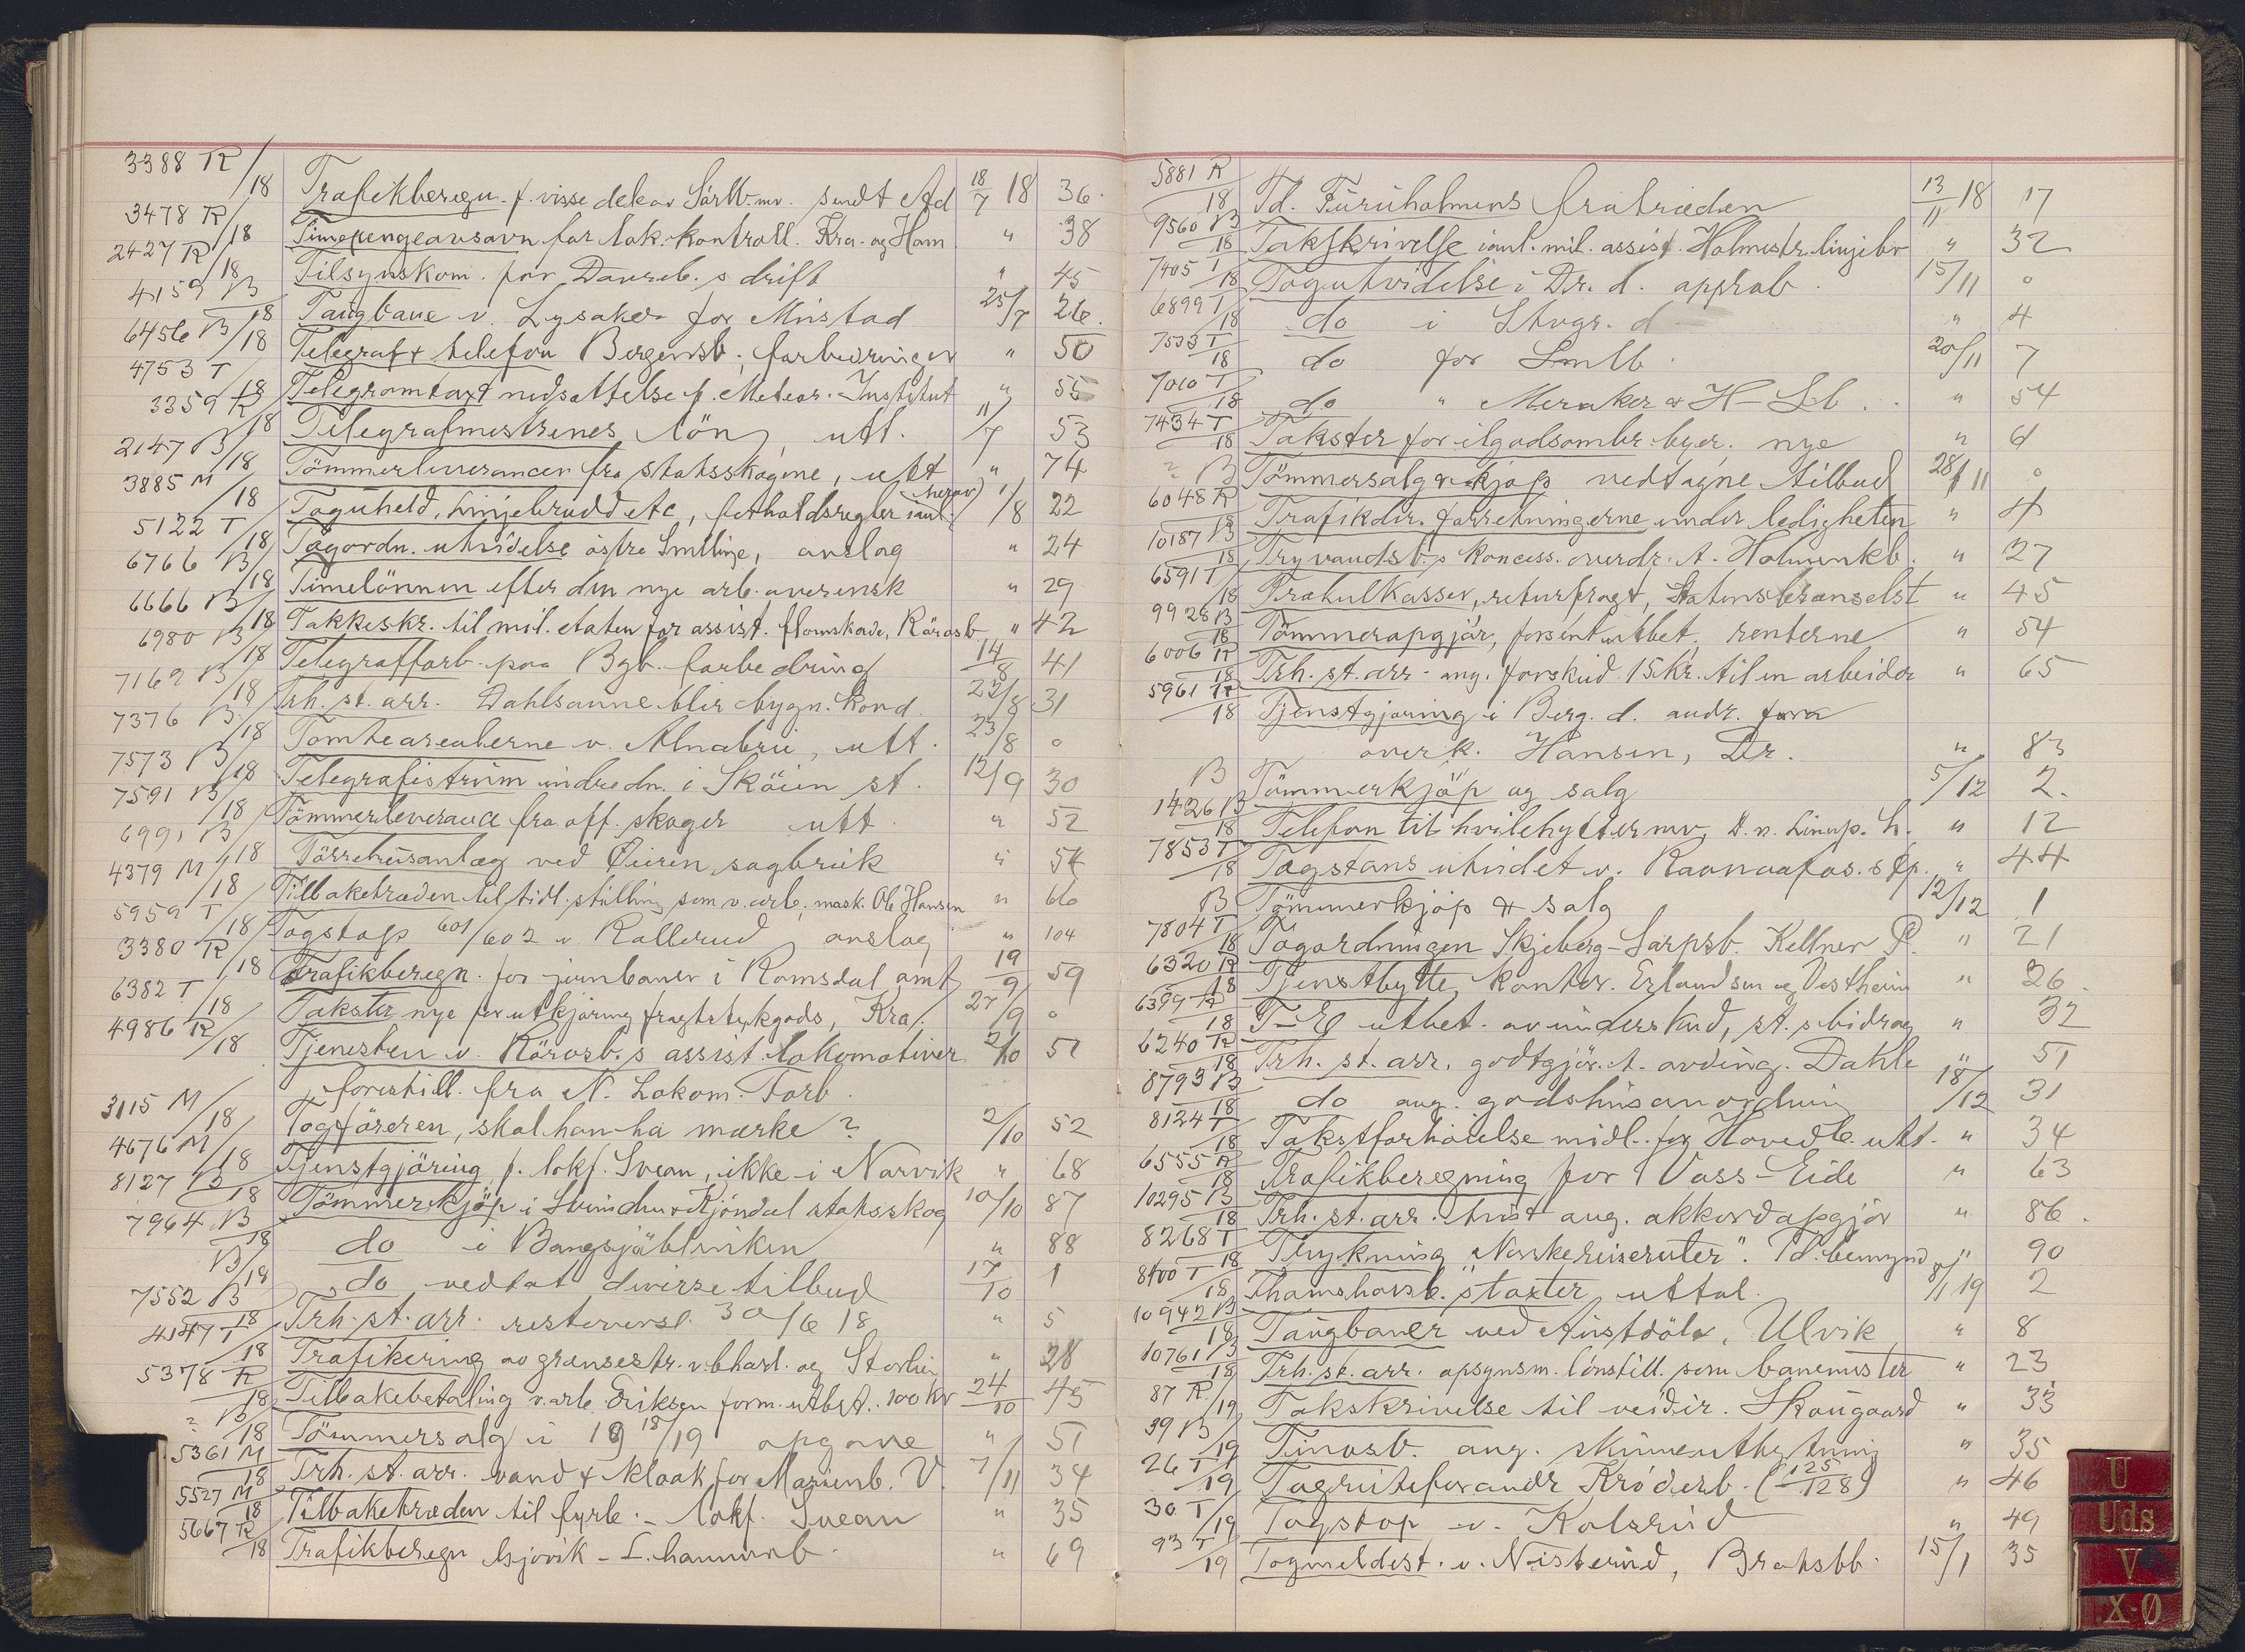 3388 R/18 Trafikberegn. f. visse dele av Sörlb. mv. sendt Ad 18/7 18 36.
3478 R/18 Timepengeansavn for lok. kontroll. Kra. og Ham " 38
2427 R/18 Tilsynskom. for Dovreb.s drift " 45
4159 B/18 Taugbane v. Lysaker for Mustad 25/7 26.
6456 B/18 Telegraf & telefon Bergensb. forbedringer " 50
4753 T/18 Telegramtaxt nedsættelse f. Meteor. Institut " 55
3359 R/18 Telegrafmestrenes lön, utt. 11/7 53
2147 B/18 Tömmerleverancer fra statsskogene, utt " 74
3885 M/18 Toguheld, Linjebrudd etc, forholdsregler herav 1/8 22
5122 T/18 Togordn. utvidelse östre Smllinje, avslag " 24
6766 B/18 Timelönnen efter den nye arb. overensk " 29
6666 B/18 Takkeskr. til mil. etaten for assist. flomskade, Rörosb " 42
6980 B/18 Telegrafforb. paa Bgb. forbedring 14/8 41
7169 B/18 Trh. st. arr. Dahlsanne blir bygn. kond. 22/8 31
7376 B/18 Tomtearealerne v. Alnabru, utt. 23/8 0
7573 B/18 Telegrafistrum indredn. i Sköien st. 12/9 30
7591 B/18 Tömmerleverance fra off. skoger utt " 52
6991 B/18 Törrehusanlæg ved Øieren sagbruk " 54
4379 M/18 Tilbaketræden til tidl. stilling som v. arb. mask. Ole Hansen " 66
5959 T/18 Togstop 601/602 v Rallerud avslag " 104
3380 R/18 Trafikberegn. for jernbaner i Romsdal amt 19/9 59
6382 T/18 Takster nye for utkjöring fragtstykgods, Kra. 27/9 0
4986 R/18 Tjenesten v. Rörosb.s assist. lokomotiver 2/10 51
forestill. fra N. Lokom. Forb.
3115 M/18 Togföreren, skal han ha mærke? 2/10 52
4676 M/18 Tjenstgjöring f. lokf. Svean, ikke i Narvik " 68
8127 B/18 Tömmerkjöp i Svindru & Kjöndal statsskog 10/10 87
7964 B/18 do i Bangsjöblinken " 88
B/18 do vedtat diverse tilbud 17/10 1
7552 B/18 Trh. st. arr. restoversl. 30/6 18 " 5
4147 T/18 Trafikering av grænsestr. v. Charl. og Storlien " 28
5378 R/18 Tilbakebetaling v. arb. Eriksen form. utbet. 100 kr 24/10 45
? B/18 Tömmersalg i 19 18/19 opgave " 51
5361 M/18 Trh. st. arr. vand & kloak for Marienb. V. 7/11 34
5527 M/18 Tilbaketræden til fyrb. - lokf. Svean " 35
5667 R/18 Trafikberegn Gjövik - L.hammerb. " 69
5881 R/18 Td. Furuholmens fratræden 13/11 18 17
9560 B/18 Takskrivelse i anl. mil. assist. Holmestr. linjebr " 32
7405 T/18 Togutvidelse i Dr. d. approb. 15/11 0
6899 T/18 do i Stvgr. d " 4
7533 T/18 do for Smlb. 20/11 7
7010 T/18 do " Meraker & H-Sb. " 54
7434 T/18 Takster for ilgodsombr. byer, nye " 61
? B Tömmersalg & kjöp vedtagne tilbud 28/11 0
6048 R/18 Trafikdir. forretningerne under ledigheten " 4
10187 B/18 Tryvandsb.s koncess. overdr. t. Holmenkb. " 27
6591 T/18 Træhulkasser, returfragt, Statens brænselst " 45
9928 B/18 Tömmeropgjör, forsent utbet. renterne " 54
6006 R/18 Trh. st. arr. ang. forskud 15 kr. til en arbeider " 65
5961 R/18 Tjenstgjöring i Berg. d. andr. fora
overk. Hansen, Dr. " 83
B Tömmerkjöp og salg 5/12 2.
1426 B/18 Telefon til hvilehytter mv, D. n. Linup. L. " 12
7853 T/18 Togstans utvidet v. Ravnaafos. s tp. " 44
B Tömmerkjöp & salg 12/12 1
7804 T/18 Togordningen Skjeberg-Sarpsb. Kellner P. " 21
6320 R/18 Tjenstbytte kontor. Erlandsen og Vestheim " 26.
6399 R/18 T-E utbet. av underskud, st.s bidrag " 32
6240 R/18 Trh. st. arr. godtgjör. t. avding. Dahle " 51
8793 B/18 do ang. godshusanordning 18/12 31
8124 T/18 Takstforhöielse midl. for Hovedb. utt. " 34
6555 R/18 Trafikberegning for Voss-Eide " 63
10295 B/18 Trh. st. arr. tvist ang. akkordopgjör " 86.
8268 T/18 Trykning "Norske reiseruter". Td. bemynd " 90
8400 T/18 Thamshavnb.s taxter uttal. 8/1 19 2
10942 B/18 Taugbaner ved Austdöla, Ulvik " 8
10761 B/18 Trh. st. arr. opsynsm. lönstill. som banemester " 23
87 R/19 Takskrivelse til veidir. Skougaard " 33
39 B/19 Tinosb. ang. skinneutbytning " 35
26 T/19 Togruteforandr Kröderb. (125/128) " 46
30 T/19 Togstop v. Kolsrud " 49
93 T/19 Togmeldest. v. Nisterud, Bratsbb. 15/1 35
U
Uds
V
X-Ø